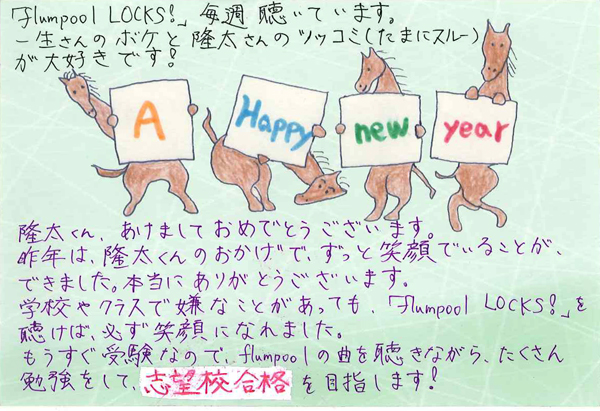 「flumpool LOCKS!」毎週聴いています。
一生さんのボケと隆太さんのツッコミ(たまにスルー)
が大好きです!
A Happy new year
隆太くん、あけましておめでとうございます。
昨年は、隆太くんのおかげで、ずっと笑顔でいることが、
できました。本当にありがとうございます。
学校やクラスで嫌なことがあっても、「flumpool LOCKS!」を
聴けば、必ず笑顔になれました。
もうすぐ受験なので、flumpoolの曲を聴きながら、たくさん
勉強をして、志望校合格を目指します!